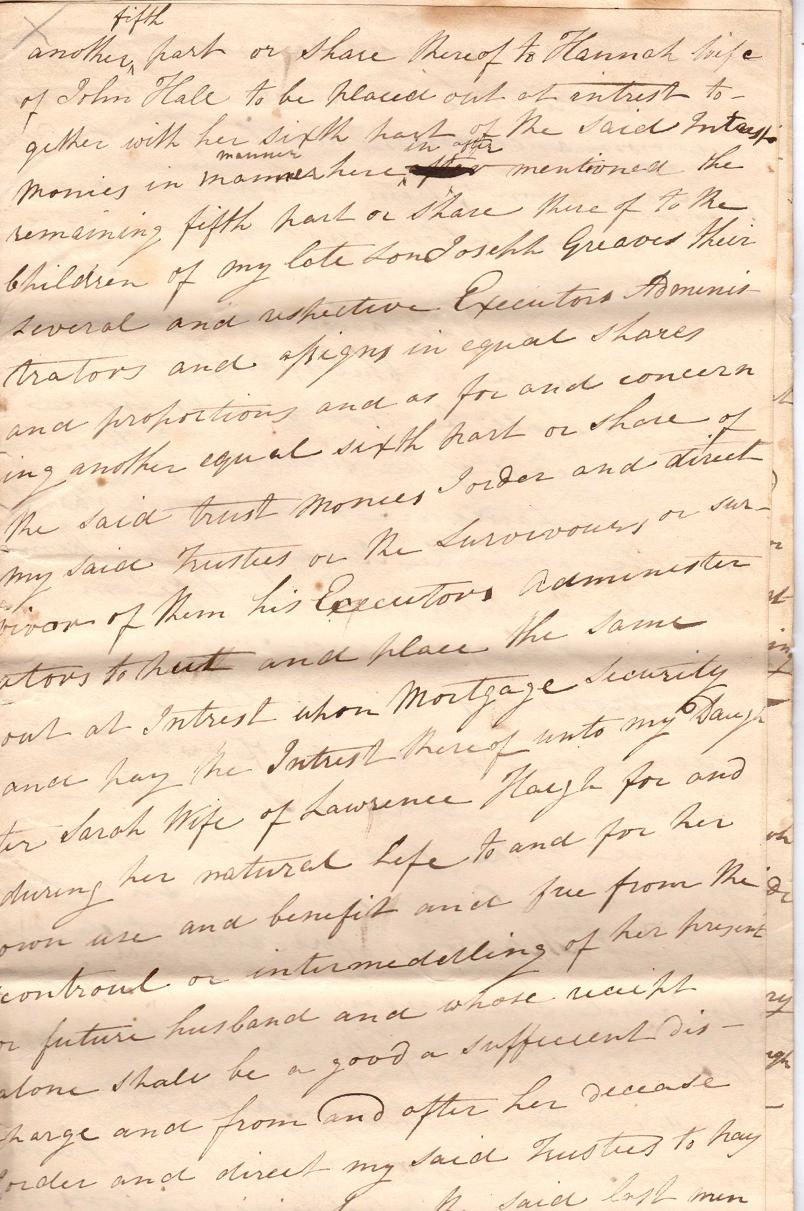 fifth
another part or share thereof to Hannah wife
of John Hall to be placed out at intrest to-
gether with her sixth part of the said Intrest
manner in after
monies in manner here mentioned the
remaining fifth part or share there of to the
Children of my late son Joseph Greaves their
several and respective Executors Adminis
trators and assigns in equal shares
and proportions and as for and concern
ing another equal sixth part or share of
the said trust monies I order and direct
my said Trusties or the Survivours or sur-
vivor of them his Executors administer
ators to put and place the same
out at Intrest upon Mortgage Security
and pay the Intrest thereof unto my Daugh
ter Sarah Wife of Lawrence Haigh for and
during her natural Life to and for her
own use and benefit and free from the
controul or intermedelling of her present
or future husband and whose receipt
alone shall be a good a sufficient dis-
charge and from and after her decease
I order and direct my said Trusties to pay
said last men